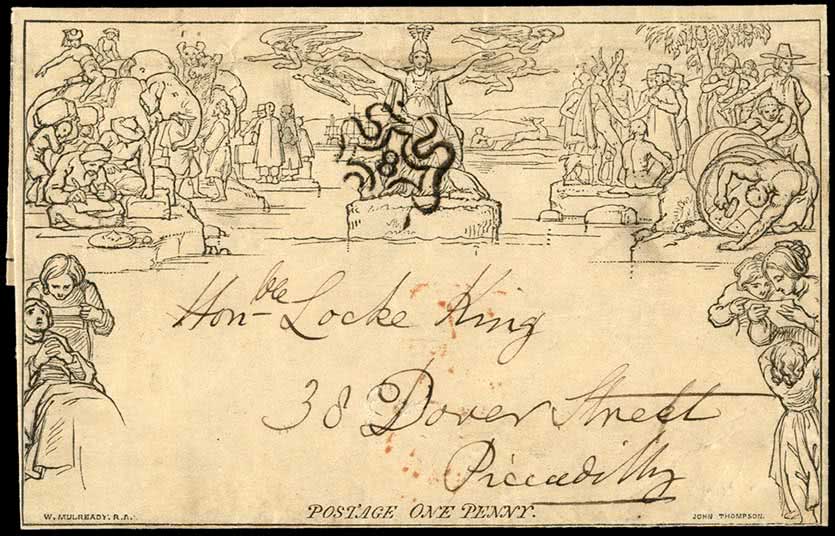 8
Honble Locke King
38 Dover Street
Piccadilly
W. MULREADY. R.A.
POSTAGE ONE PENNY.
JOHN THOMPSON.